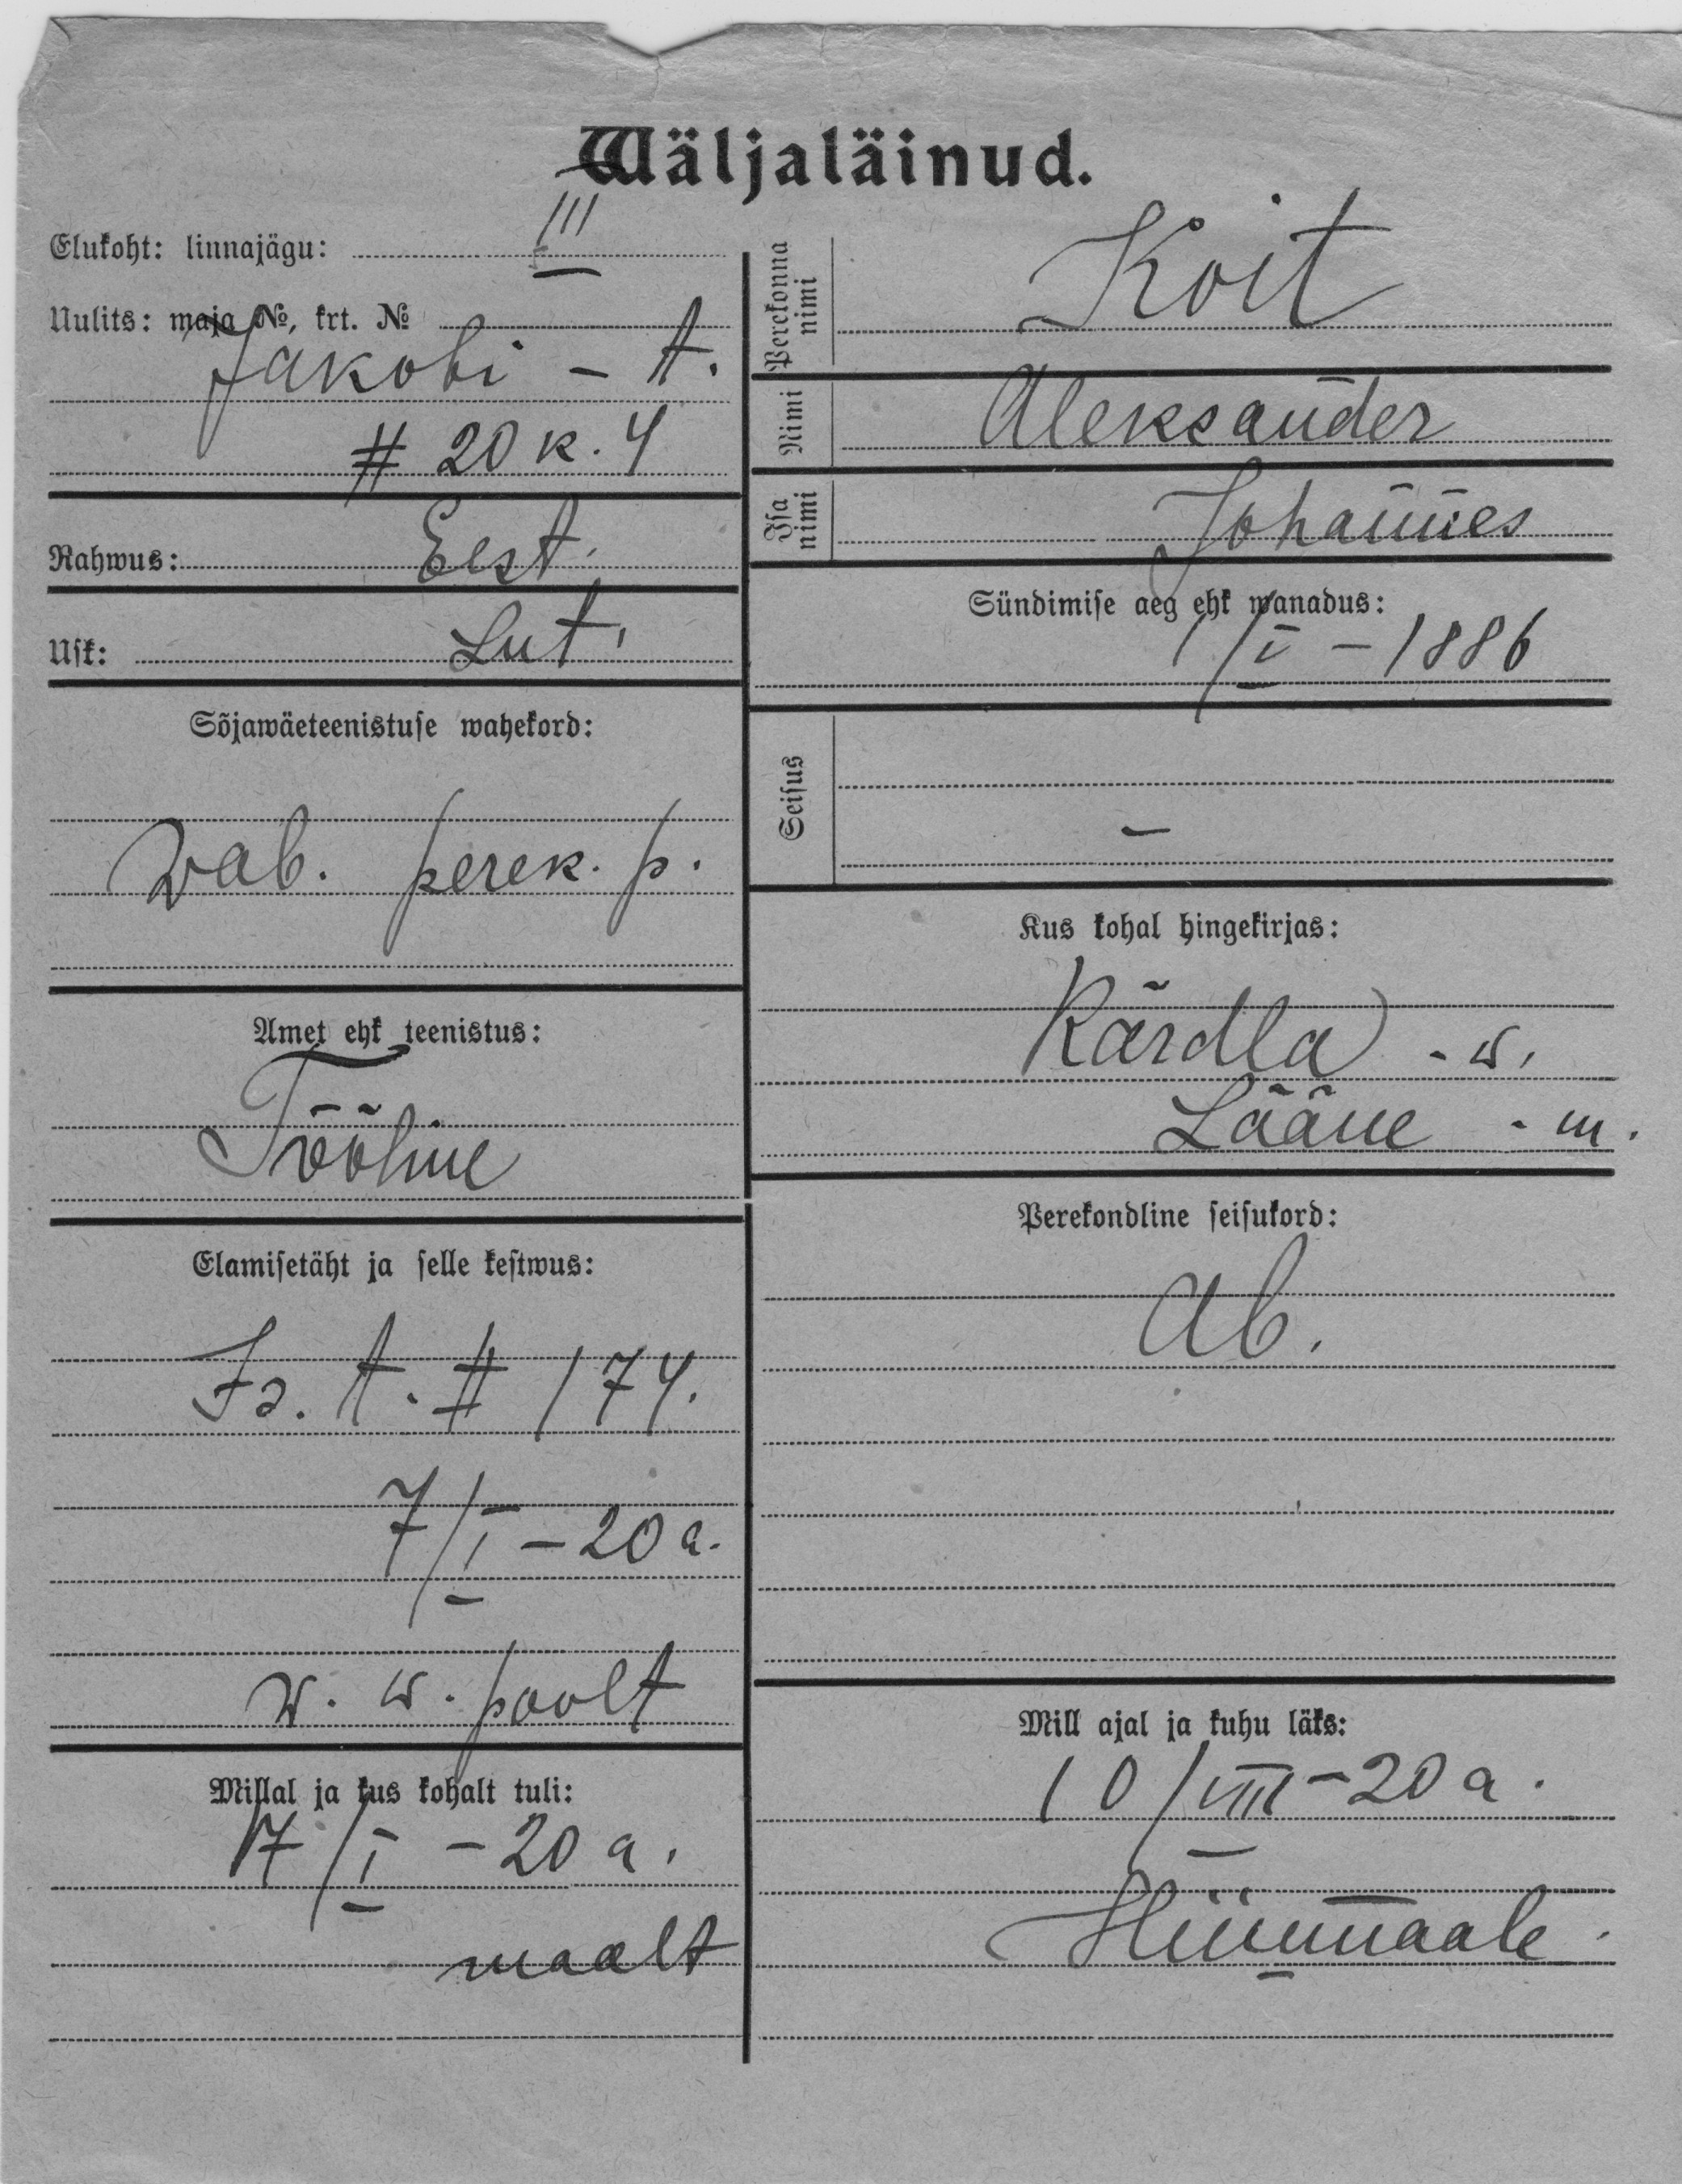 Wäljaläinud.
Elukoht: linnajägu: III
Uulits: maja №, krt. №
Jakobi - t.
# 20 k. 4
Rahwus: Eest.
Usk: Lut.
Sõjawäeteenistuse wahekord:
Wab. perek. p.
Amet ehk teenistus:
Tööline
Elamisetäht ja selle kestwus:
t. # 174.
7/I - 20 a.
w. w. poolt
Millal ja kus kohalt tuli:
7/I - 20 a.
maalt
Perekonna nimi
Koit
Nimi
Aleksander
Isa nimi
Johannes
Sündimise aeg ehk wanadus:
1/I - 1886
Seisus
-
Kus kohal hingekirjas:
Kärdla - w.
Lääne - m.
Perekondline seisukord:
Ab.
Mill ajal ja kuhu läks:
10/VIII - 20 a.
Hiiumaale.